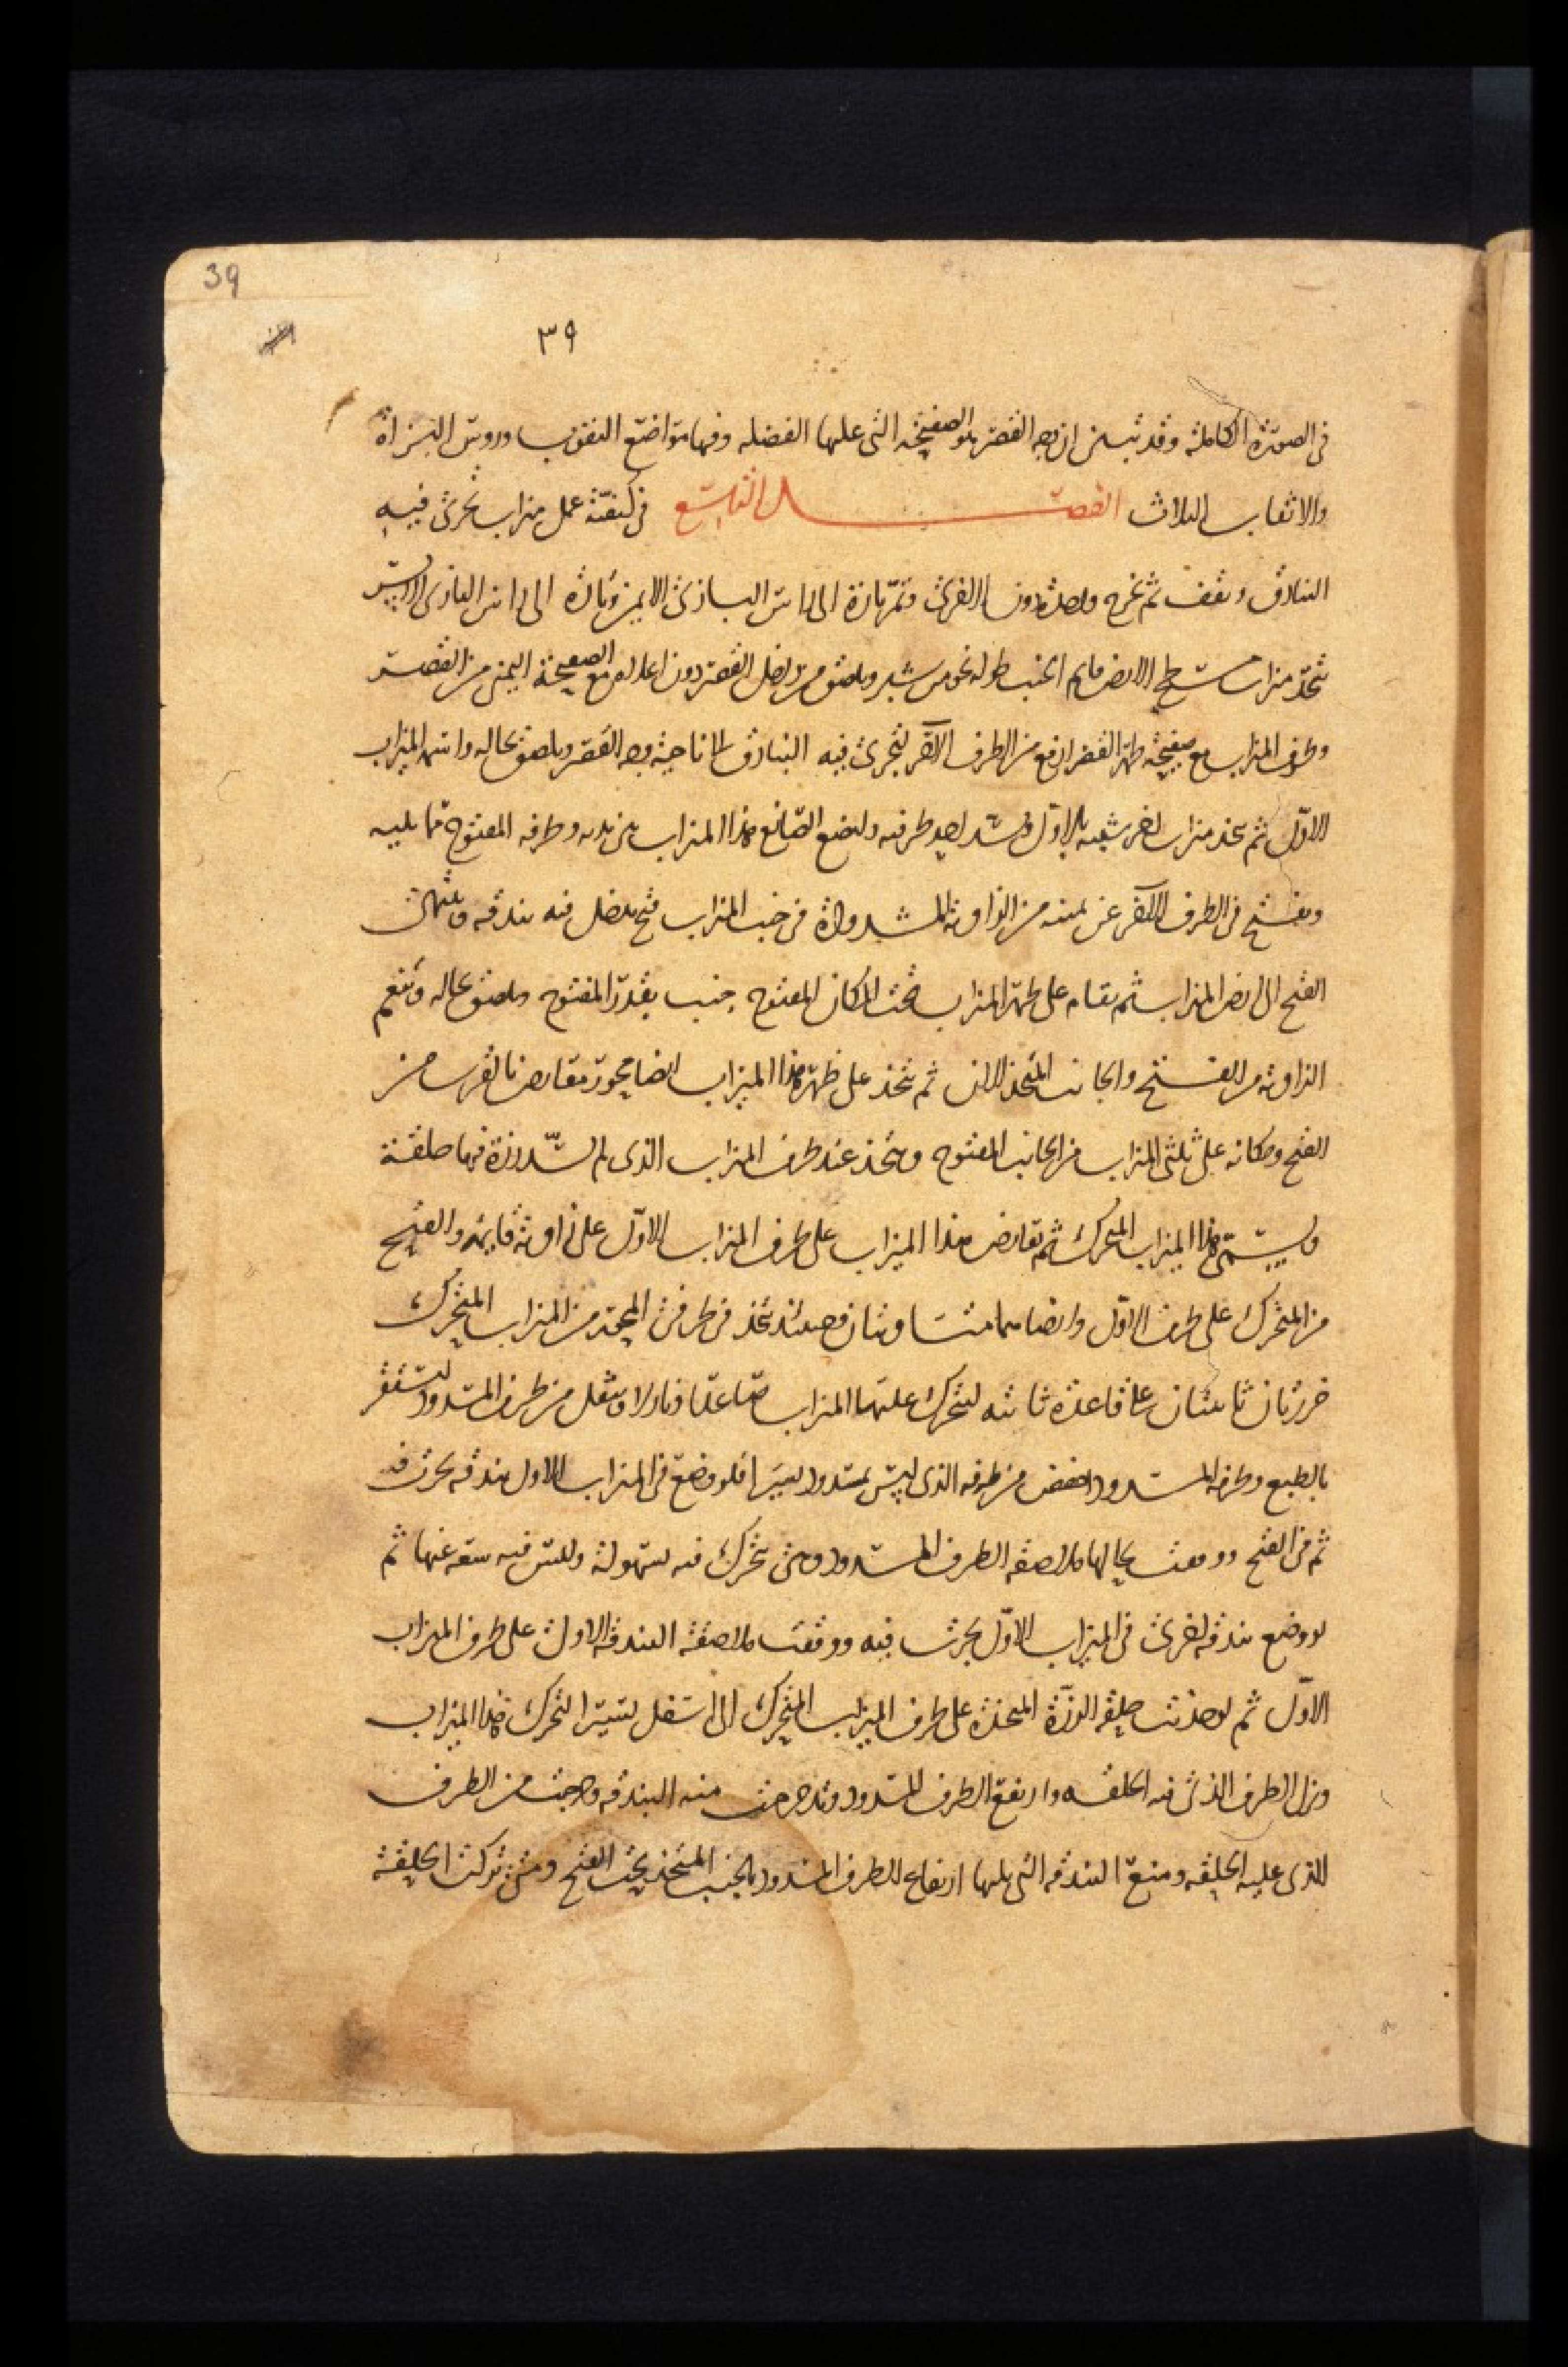 39
٣٩
في الصورة الكاملة وقد تبين ان وجه القصر هو الصفيحة التي عليها الفضله وفيها مواضع الثقوب ورووس البزاة
والاثقاب الثلاث الفصل التاسع في كيفية عمل ميزاب تجري فيه
البنادق وتقف ثم تخرج واحدة دون الاخرى وتمر تارة الى راس البازي الايمن وتارة الى راس البازي الايسر
يتخذ ميزاب مسطح الارض قايم الجنب طوله نحو من شبر ويلصق من داخل القصر دون اعلاه مع الصفيحة اليمنى من القصر
وطرف الميزاب مع صفيحة ظهر القصر ارفع من الطرف الاخر لتجري فيه البنادق الى ناحية وجه القصر ويلصق بحاله واسمه الميزاب
الاول ثم يتخذ ميزاب اخر شبيه بالاول ويشد احد طرفيه وليضع الصانع هذا الميزاب بين يديه وطرفه المفتوح مما يليه
ويفتح في الطرف الاخر عن يمينه من الزاوية المشدودة في جنب الميزاب فتح يدخل فيه بندقه وينتهي
الفتح الى ارض الميزاب ثم يقام على ظهر الميزاب تحت المكان المفتوح جنب بقدر المفتوح ويلصق بحاله وتنعم
الزاوية من الفتح والجانب المتخذ الان ثم يتخذ على ظهر هذا الميزاب ايضا محور مقارض بالقرب من
الفتح ومكانه على ثلثي الميزاب من الجانب المفتوح ويتخذ عند طرف الميزاب الذي لم يشد رزة فيها حلقة
ويسمى هذا الميزاب المتحرك ثم يقارض هذا الميزاب على طرف الميزاب الاول على زاوية قايمة والفتح
من المتحرك على طرف الاول وارضاهما متساويتان وحينئذ يتخذ في طرفي المحور من الميزاب المتحرك
خرزتان ثابتتان على قاعدة ثابتة ليتحرك عليهما الميزاب صاعدا ونازلا ويثقل من طرف المسدود ليستقر
بالطبع وطرفه المسدود اخفض من طرفه الذي ليس بمسدود يسيرا فلو وضع في الميزاب الاول بندقه جرت فيه
ثم في الفتح ووقفت بحالها ملاصقه الطرف المسدود وهي تتحرك فيه بسهولة وليس فيه سعه عنها ثم
لو وضع بندقه اخرى في الميزاب الاول جرت فيه ووقفت ملاصقة البندقة الاولى على طرف الميزاب
الاول ثم لو جذبت حلقة الرزة المتخذة على طرف الميزاب المتحرك الى اسفل يسيرا لتحرك هذا الميزاب
ونزل الطرف الذي فيه الحلقه وارتفع الطرف المسدود وتدحرجت منه البندقه وخرجت من الطرف
الذي عليه الحلقه ومنع البندقه التي تليها ارتفاع الطرف المسدود بالجنب المتخذ تحت الفتح ومتى تركت الحلقة